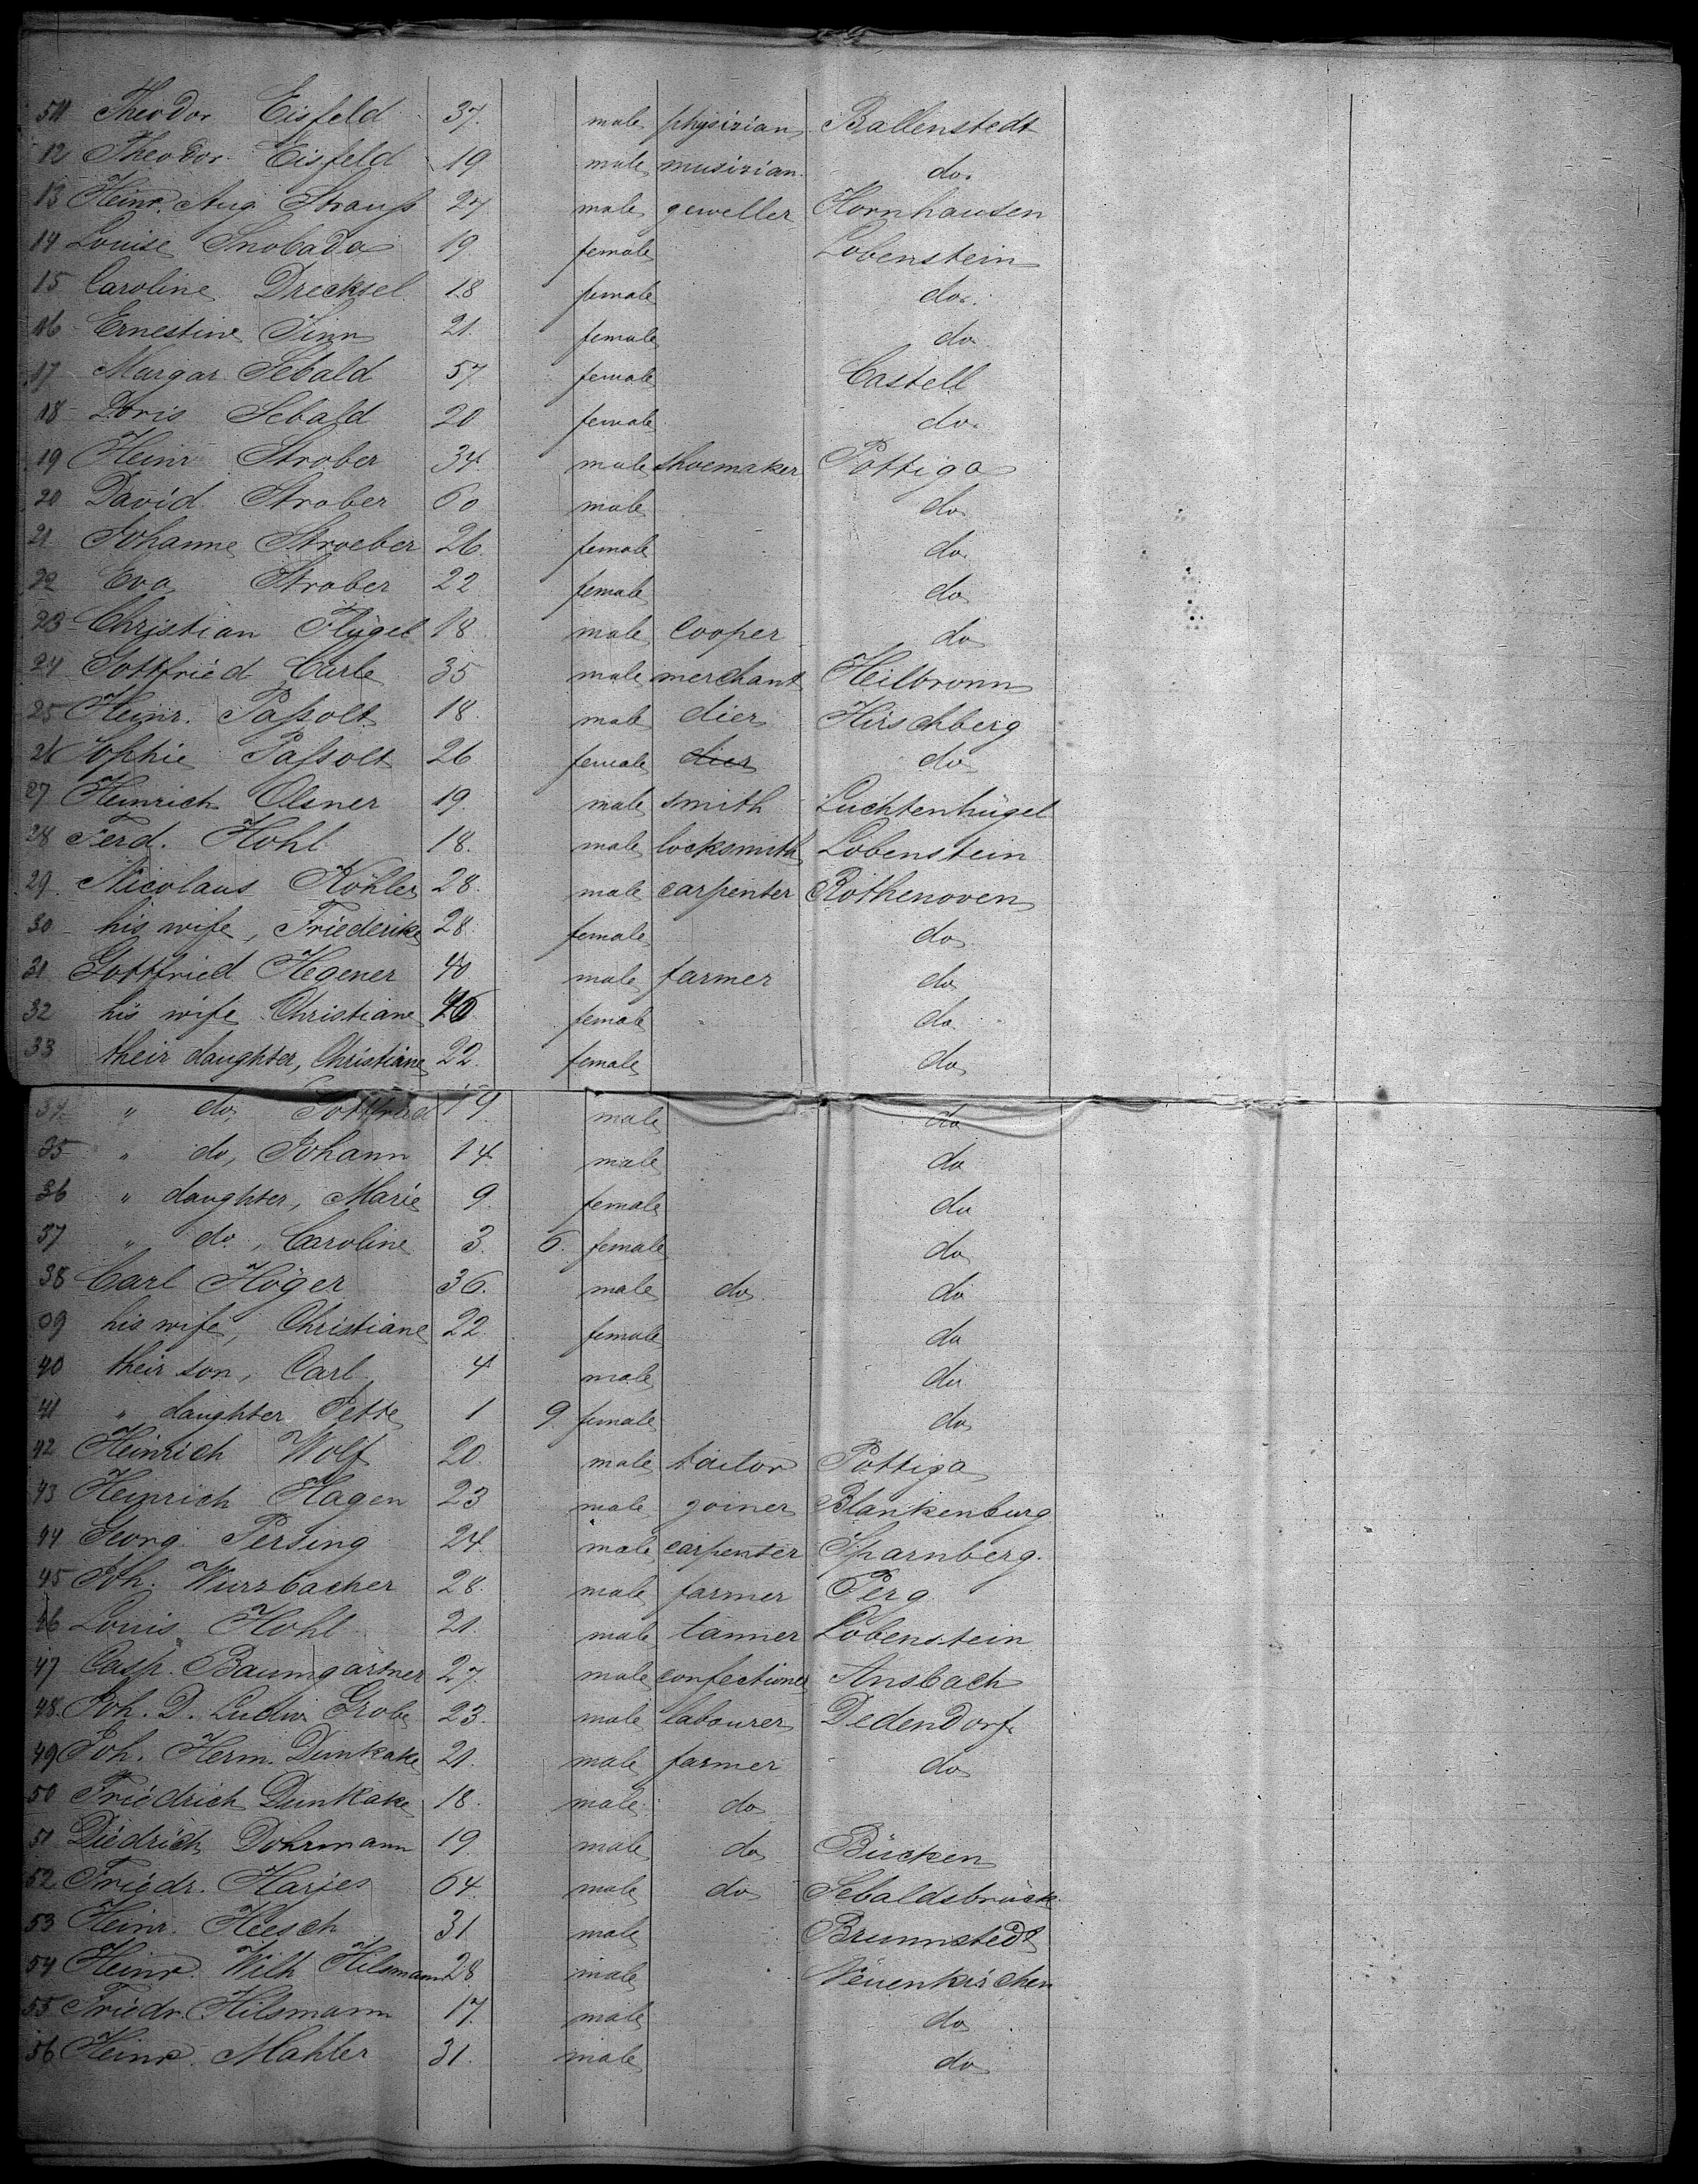 511 Theodor Eisfeld 37. male physician Ballenstedt
12 Theodor Eisfeld 19 male musician do.
13 Heinr. Aug. Strauß 27. male geweller Hornhausen
14 Louise Snobada 19 female Lobenstein
15 Caroline Drecksel 18 female do.
16 Ernestine Sinn 21. female do.
17 Margar. Sebald 57. female Castell
18 Doris Sebald 20 female do.
19 Heinr. Strober 34 male shoemaker Pottiga
20 David Strober 60 male do.
21 Johanne Stroeber 26. female do.
22 Eva Strober 22 female do
23 Christian Flügel 18 male cooper do
24 Gottfried Carle 35 male merchant Heilbronn
25 Heinr. Paßolt 18. male dier Hirschberg
26 Sophie Paßolt 26 female dier do
27 Heinrich Olsner 19. male smith Luchtenhügel
28 Ferd. Hohl 18. male locksmith Lobenstein
29. Nicolaus Köhler 28. male carpenter Rothenoven
30 his wife, Friederike 28. female do
31 Gottfried Hegener 40 male farmer do
32 his wife Christiane female do.
33 their daughter, Christiane 22. female do
34 " do, Gottfried 19. male do
35 " do, Johann 14. male do
36 " daughter, Marie 9. female do
37 " do, Caroline 3. 6. female do
38 Carl Höger 36. male do. do
09 his wife, Christiane 22. female do
40 their son, Carl 4 male do
41 " daughter Jette 1 9. female do
42 Heinrich Wolf 20. male tailor Pottiga
43 Heinrich Hagen 23 male goiner Blankenburg
44 Georg Persing 24. male carpenter Sparnberg.
45 Joh. Wurzbacher 28. male farmer Perg
46 Louis Hohl 21. male tanner Lobenstein
47 Casp. Baumgartner 27. male confectioner Ansbach
48. Joh. D. Ludw. Grobe 23. male labourer Dedendorf
49 Joh. Herm. Dunkake 21. male farmer do
50 Friedrich Dunkake 18. male do
51 Diedrich Dohrmann 19. male do Bücken
52 Friedr. Harjes 64. male do Sebaldsbrück
53 Heinr. Heesch 31. male Brunnstedt
54 Heinr. Wilh Hilsmann 28. male Neuenkirchen
55 Friedr. Hilsmann 17. male do
56 Heinr. Mahler 31. male do